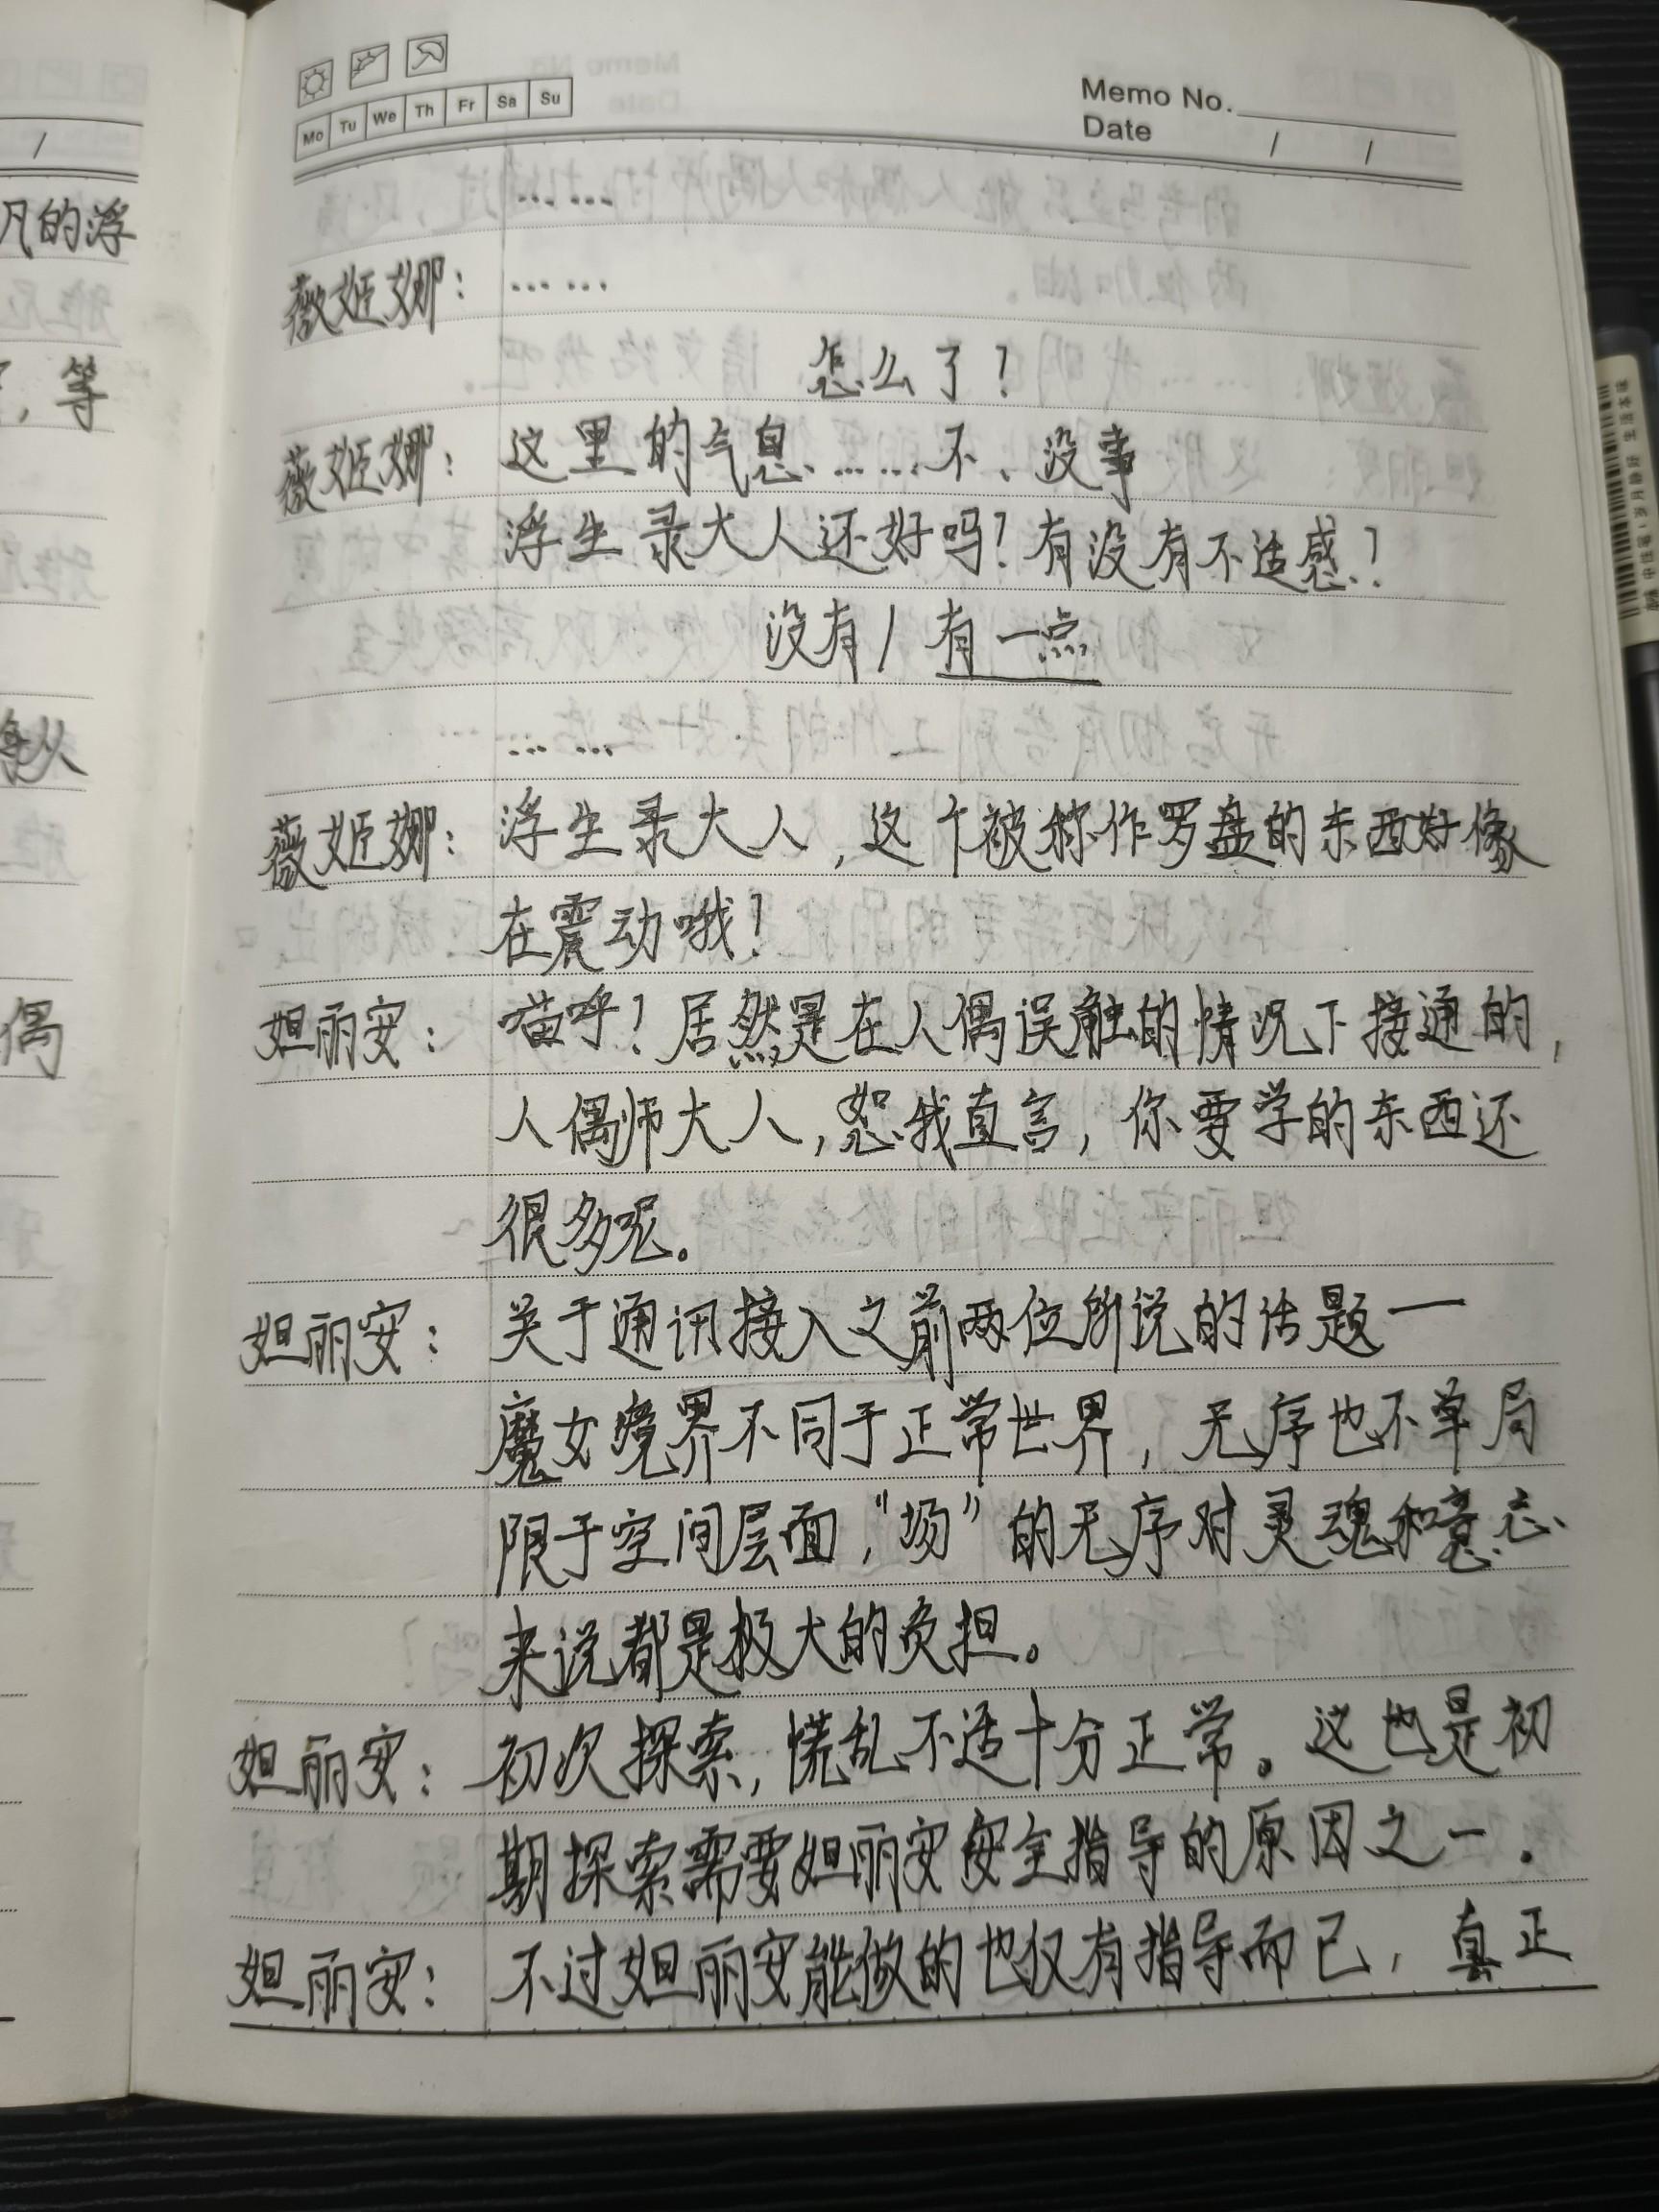 Mo Tu We Th Fr Sa Su
Memo No.
Date / /
……
薇姬娜：……
怎么了？
薇姬娜：这里的气息……不、没事
浮生录大人还好吗？有没有不适感？
没有/有一点
……
薇姬娜：浮生录大人，这个被称作罗盘的东西好像
在震动哦！
妲丽安：喵呼！居然是在人偶误触的情况下接通的，
人偶师大人，恕我直言，你要学的东西还
很多呢。
妲丽安：关于通讯接入之前两位所说的话题一
魔女境界不同于正常世界，无序也不单局
限于空间层面，“场”的无序对灵魂和意志
来说都是极大的负担。
妲丽安：初次探索，慌乱不适十分正常。这也是初
期探索需要妲丽安安全指导的原因之一．
妲丽安：不过妲丽安能做的也仅有指导而已，真正
/
凡的浮
，等
偶